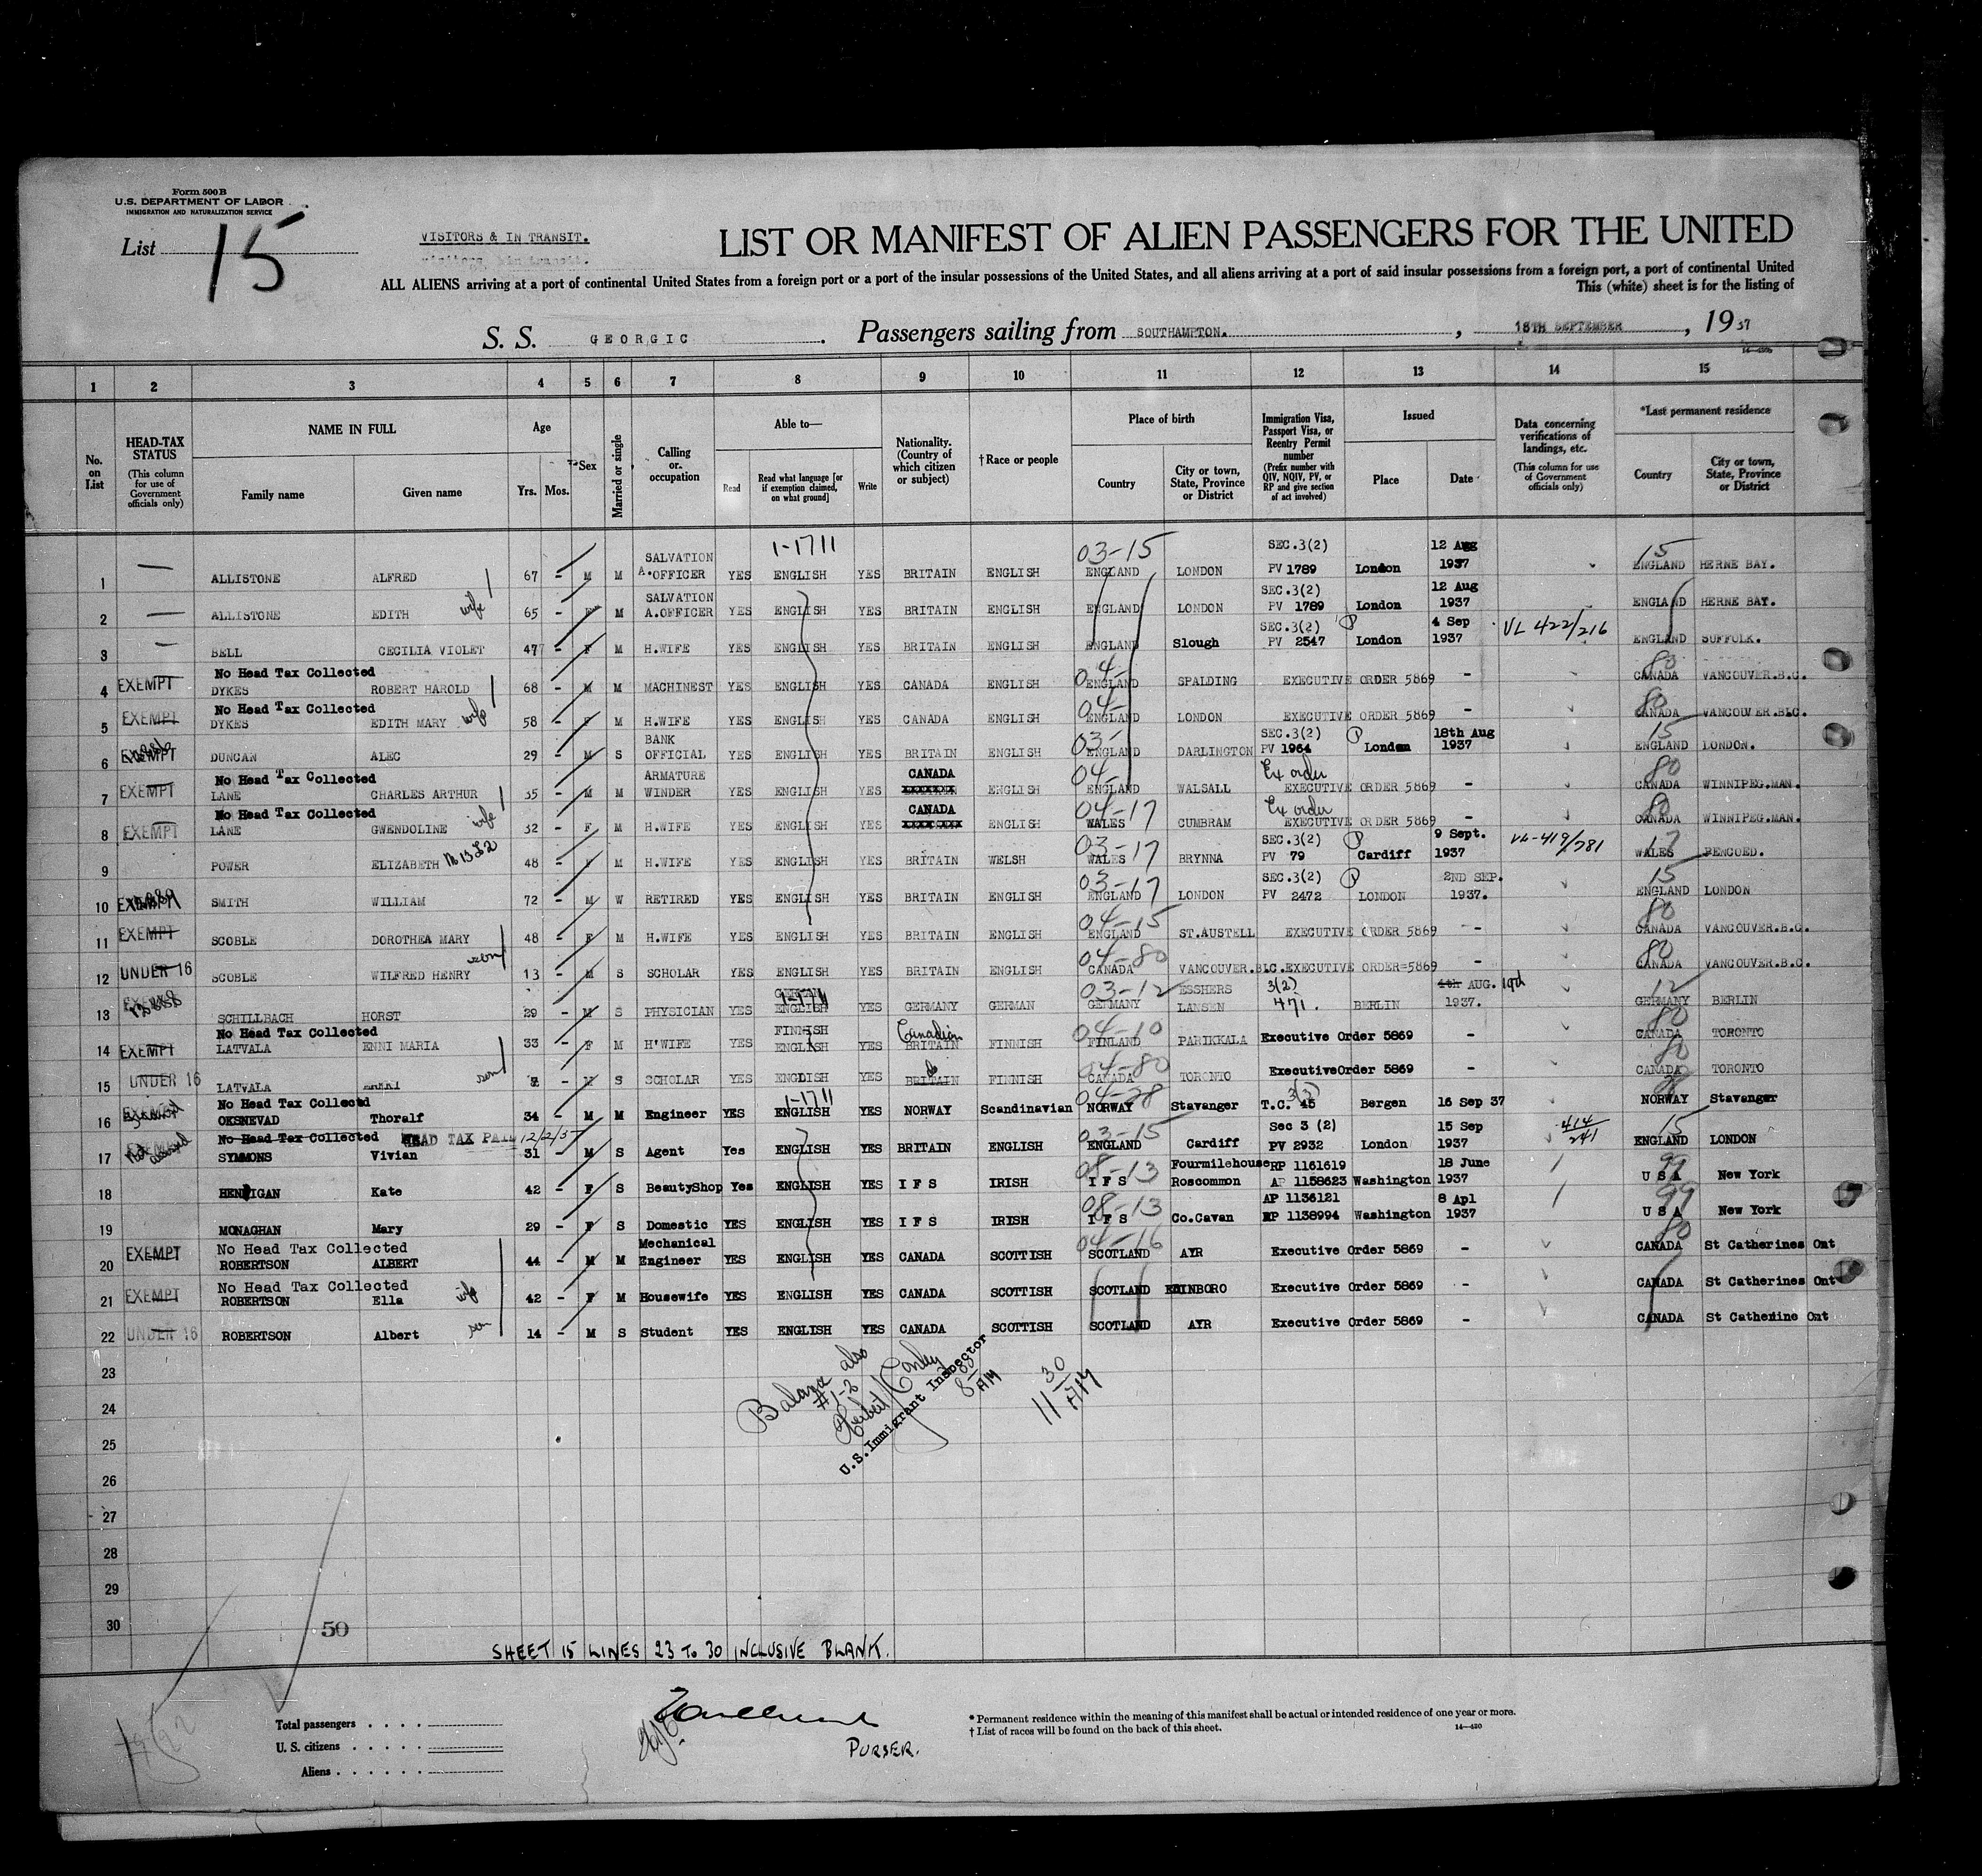 Form 500B
U.S. DEPARTMENT OF LABOR
IMMIGRATION AND NATURALIZATION SERVICE
List 15
VISITORS & IN TRANSIT.
LIST OR MANIFEST OF ALIEN PASSENGERS FOR THE UNITED
ALL ALIENS arriving at a port of continental United States from a foreign port or a port of the insular possessions of the United States, and all aliens arriving at a port of said insular possessions from a foreign port, a port of continental United
This (white) sheet is for the listing of
S. S. GEORGIC. Passengers sailing from SOUTHAMPTON., 18TH SEPTEMBER, 1937
1 2 3 4 5 6 7 8 9 10 11 12 13 14 15
No. on List
HEAD-TAX STATUS (This column for use of Government officials only)
NAME IN FULL
Family name Given name
Age
Yrs. Mos.
Sex
Married or single
Calling or occupation
Able to—
Read Read what language [or if exemption claimed, on what ground] Write
Nationality. (Country of which citizen or subject)
†Race or people
Place of birth
Country City or town, State, Province or District
Immigration Visa, Passport Visa, or Reentry Permit number (Prefix number with QIV, NQIV, PV, or RP and give section of act involved)
Issued
Place Date
Data concerning verifications of landings, etc. (This column for use of Government officials only)
*Last permanent residence
Country City or town, State, Province or District
1-1711 03-15 SEC.3(2) 12 Aug 15
SALVATION
1 — ALLISTONE ALFRED 67 - M M A.OFFICER YES ENGLISH YES BRITAIN ENGLISH ENGLAND LONDON PV 1789 London 1937 ENGLAND HERNE BAY.
SALVATION SEC.3(2) 12 Aug
2 — ALLISTONE EDITH wife 65 - F M A.OFFICER YES ENGLISH YES BRITAIN ENGLISH ENGLAND LONDON PV 1789 London 1937 ENGLAND HERNE BAY.
SEC.3(2) P 4 Sep VL 422/216
3 — BELL CECILIA VIOLET 47 - F M H.WIFE YES ENGLISH YES BRITAIN ENGLISH ENGLAND Slough PV 2547 London 1937 ENGLAND SUFFOLK.
No Head Tax Collected 04- 80
4 EXEMPT DYKES ROBERT HAROLD 68 - M M MACHINEST YES ENGLISH YES CANADA ENGLISH ENGLAND SPALDING EXECUTIVE ORDER 5869 - CANADA VANCOUVER.B.C.
No Head Tax Collected 04- 80
5 EXEMPT DYKES EDITH MARY wife 58 - F M H.WIFE YES ENGLISH YES CANADA ENGLISH ENGLAND LONDON EXECUTIVE ORDER 5869 - CANADA VANCOUVER.B.C.
BANK 03- SEC.3(2) P 18th Aug 15
6 EXEMPT DUNCAN ALEC 29 - M S OFFICIAL YES ENGLISH YES BRITAIN ENGLISH ENGLAND DARLINGTON PV 1964 London 1937 ENGLAND LONDON.
No Head Tax Collected ARMATURE CANADA 04- Ex order 80
7 EXEMPT LANE CHARLES ARTHUR 35 - M M WINDER YES ENGLISH YES ENGLISH ENGLAND WALSALL EXECUTIVE ORDER 5869 - CANADA WINNIPEG.MAN.
No Head Tax Collected CANADA 04-17 Ex order 80
8 EXEMPT LANE GWENDOLINE wife 32 - F M H.WIFE YES ENGLISH YES ENGLISH WALES CUMBRAM EXECUTIVE ORDER 5869 - CANADA WINNIPEG.MAN.
03-17 SEC.3(2) P 9 Sept. VL-419/781 17
9 POWER ELIZABETH 48 - F M H.WIFE YES ENGLISH YES BRITAIN WELSH WALES BRYNNA PV 79 Cardiff 1937 WALES PENCOED.
03-17 SEC.3(2) P 2ND SEP. 15
10 EXEMPT SMITH WILLIAM 72 - M W RETIRED YES ENGLISH YES BRITAIN ENGLISH ENGLAND LONDON PV 2472 LONDON 1937. ENGLAND LONDON
04-15 80
11 EXEMPT SCOBLE DOROTHEA MARY 48 - F M H.WIFE YES ENGLISH YES BRITAIN ENGLISH ENGLAND ST.AUSTELL EXECUTIVE ORDER 5869 - CANADA VANCOUVER.B.C.
04-80 80
12 UNDER 16 SCOBLE WILFRED HENRY son 13 - M S SCHOLAR YES ENGLISH YES BRITAIN ENGLISH CANADA VANCOUVER.B.C. EXECUTIVE ORDER=5869 - CANADA VANCOUVER.B.C.
GERMAN 1-1711 03-12 ESSHERS 3(2) AUG. 12
13 SCHILLBACH HORST 29 - M S PHYSICIAN YES ENGLISH YES GERMANY GERMAN GERMANY LANSEN 471. BERLIN 1937. GERMANY BERLIN
No Head Tax Collected FINNISH Canadian 04-10 80
14 EXEMPT LATVALA ENNI MARIA 33 - F M H'WIFE YES ENGLISH YES BRITAIN FINNISH FINLAND PARIKKALA Executive Order 5869 - CANADA TORONTO
04-80 80
15 UNDER 16 LATVALA son - M S SCHOLAR YES ENGLISH YES BRITAIN FINNISH CANADA TORONTO ExecutiveOrder 5869 - CANADA TORONTO
No Head Tax Collected 1-1711 04-28 3(2)
16 OKSNEVAD Thoralf 34 - M M Engineer YES ENGLISH YES NORWAY Scandinavian NORWAY Stavanger T.C. 45 Bergen 16 Sep 37 NORWAY Stavanger
No Head Tax Collected HEAD TAX PAID 03-15 Sec 3 (2) 15 Sep 414/241 15
17 SYMMONS Vivian 31 - M S Agent Yes ENGLISH YES BRITAIN ENGLISH ENGLAND Cardiff PV 2932 London 1937 ENGLAND LONDON
08-13 Fourmilehouse RP 1161619 18 June 99
18 Kate 42 - F S BeautyShop Yes ENGLISH YES I F S IRISH I F S Roscommon AP 1158623 Washington 1937 U S A New York
08-13 AP 1136121 8 Apl 99
19 MONAGHAN Mary 29 - F S Domestic YES ENGLISH YES I F S IRISH I F S Co.Cavan RP 1138994 Washington 1937 U S A New York
No Head Tax Collected Mechanical 04-16 80
20 EXEMPT ROBERTSON ALBERT 44 - M M Engineer YES ENGLISH YES CANADA SCOTTISH SCOTLAND AYR Executive Order 5869 - CANADA St Catherines Ont
No Head Tax Collected
21 EXEMPT ROBERTSON Ella wife 42 - F M Housewife YES ENGLISH YES CANADA SCOTTISH SCOTLAND EDINBORO Executive Order 5869 - CANADA St Catherines Ont
22 UNDER 16 ROBERTSON Albert son 14 - M S Student YES ENGLISH YES CANADA SCOTTISH SCOTLAND AYR Executive Order 5869 - CANADA St Catherine Ont
23
24
25
26
27
28
29
30
also
#1-2
U.S. Immigrant Inspector
8 AM
11 30 AM
50
SHEET 15 LINES 23 TO 30 INCLUSIVE BLANK.
PURSER.
Total passengers
U. S. citizens
Aliens
* Permanent residence within the meaning of this manifest shall be actual or intended residence of one year or more.
† List of races will be found on the back of this sheet.
14—420